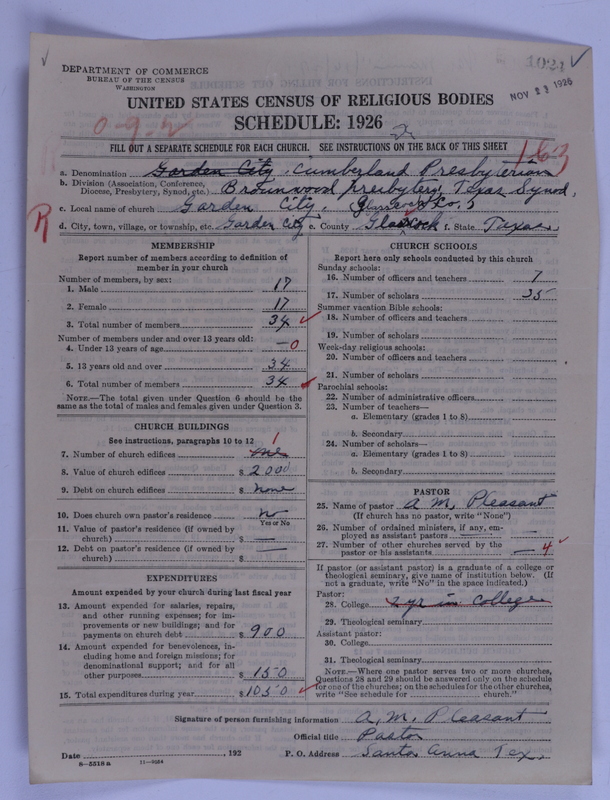 1021
DEPARTMENT OF COMMERCE
BUREAU OF THE CENSUS
WASHINGTON
NOV 22 1926
UNITED STATES CENSUS OF RELIGIOUS BODIES
SCHEDULE: 1926
0-9-2
FILL OUT A SEPARATE SCHEDULE FOR EACH CHURCH. SEE INSTRUCTIONS ON THE BACK OF THIS SHEET
163
a. Denomination Garden City, Cumberland Presbyterian
b. Division (Association, Conference, Diocese, Presbytery, Synod, etc.) Brownwood presbytery, Texas Synod,
c. Local name of church Garden City, Glasscock Co.,
R
d. City, town, village, or township, etc. Garden City e. County Glasscock f. State Texas
MEMBERSHIP
Report number of members according to definition of
member in your church
Number of members, by sex:
1. Male 17
2. Female 17
3. Total number of members 34
Number of members under and over 13 years old:
4. Under 13 years of age — 0
5. 13 years old and over 34
6. Total number of members 34
NOTE.—The total given under Question 6 should be
the same as the total of males and females given under Question 3.
CHURCH BUILDINGS
See instructions, paragraphs 10 to 12
1
7. Number of church edifices one
8. Value of church edifices $2000
9. Debt on church edifices $ none
10. Does church own pastor's residence? no
Yes or No
11. Value of pastor's residence (if owned by
church) $ —
12. Debt on pastor's residence (if owned by
church) $ —
EXPENDITURES
Amount expended by your church during last fiscal year
13. Amount expended for salaries, repairs,
and other running expenses; for im-
provements or new buildings; and for
payments on church debt $ 900
14. Amount expended for benevolences, in-
cluding home and foreign missions; for
denominational support; and for all
other purposes $ 150
15. Total expenditures during year $1050
CHURCH SCHOOLS
Report here only schools conducted by this church
Sunday schools:
16. Number of officers and teachers 7
17. Number of scholars 35
Summer vacation Bible schools:
18. Number of officers and teachers
19. Number of scholars
Week-day religious schools:
20. Number of officers and teachers
21. Number of scholars
Parochial schools:
22. Number of administrative officers
23. Number of teachers—
a. Elementary (grades 1 to 8)
b. Secondary
24. Number of scholars—
a. Elementary (grades 1 to 8)
b. Secondary
PASTOR
25. Name of pastor A M, Pleasant
(If church has no pastor, write "None")
26. Number of ordained ministers, if any, em-
ployed as assistant pastors —
27. Number of other churches served by the
pastor or his assistants — 4
If pastor (or assistant pastor) is a graduate of a college or
theological seminary, give name of institution below. (If
not a graduate, write "No" in the space indicated.)
Pastor:
28. College 2 yr in College
29. Theological seminary
Assistant pastor:
30. College
31. Theological seminary
NOTE.—Where one pastor serves two or more churches,
Questions 28 and 29 should be answered only on the schedule
for one of the churches; on the schedules for the other churches,
write "See schedule for church."
Signature of person furnishing information A, M, Pleasant
Official title Pastor
Date , 192 P. O. Address Santa Anna Tex,
8—5518 a 11—9024